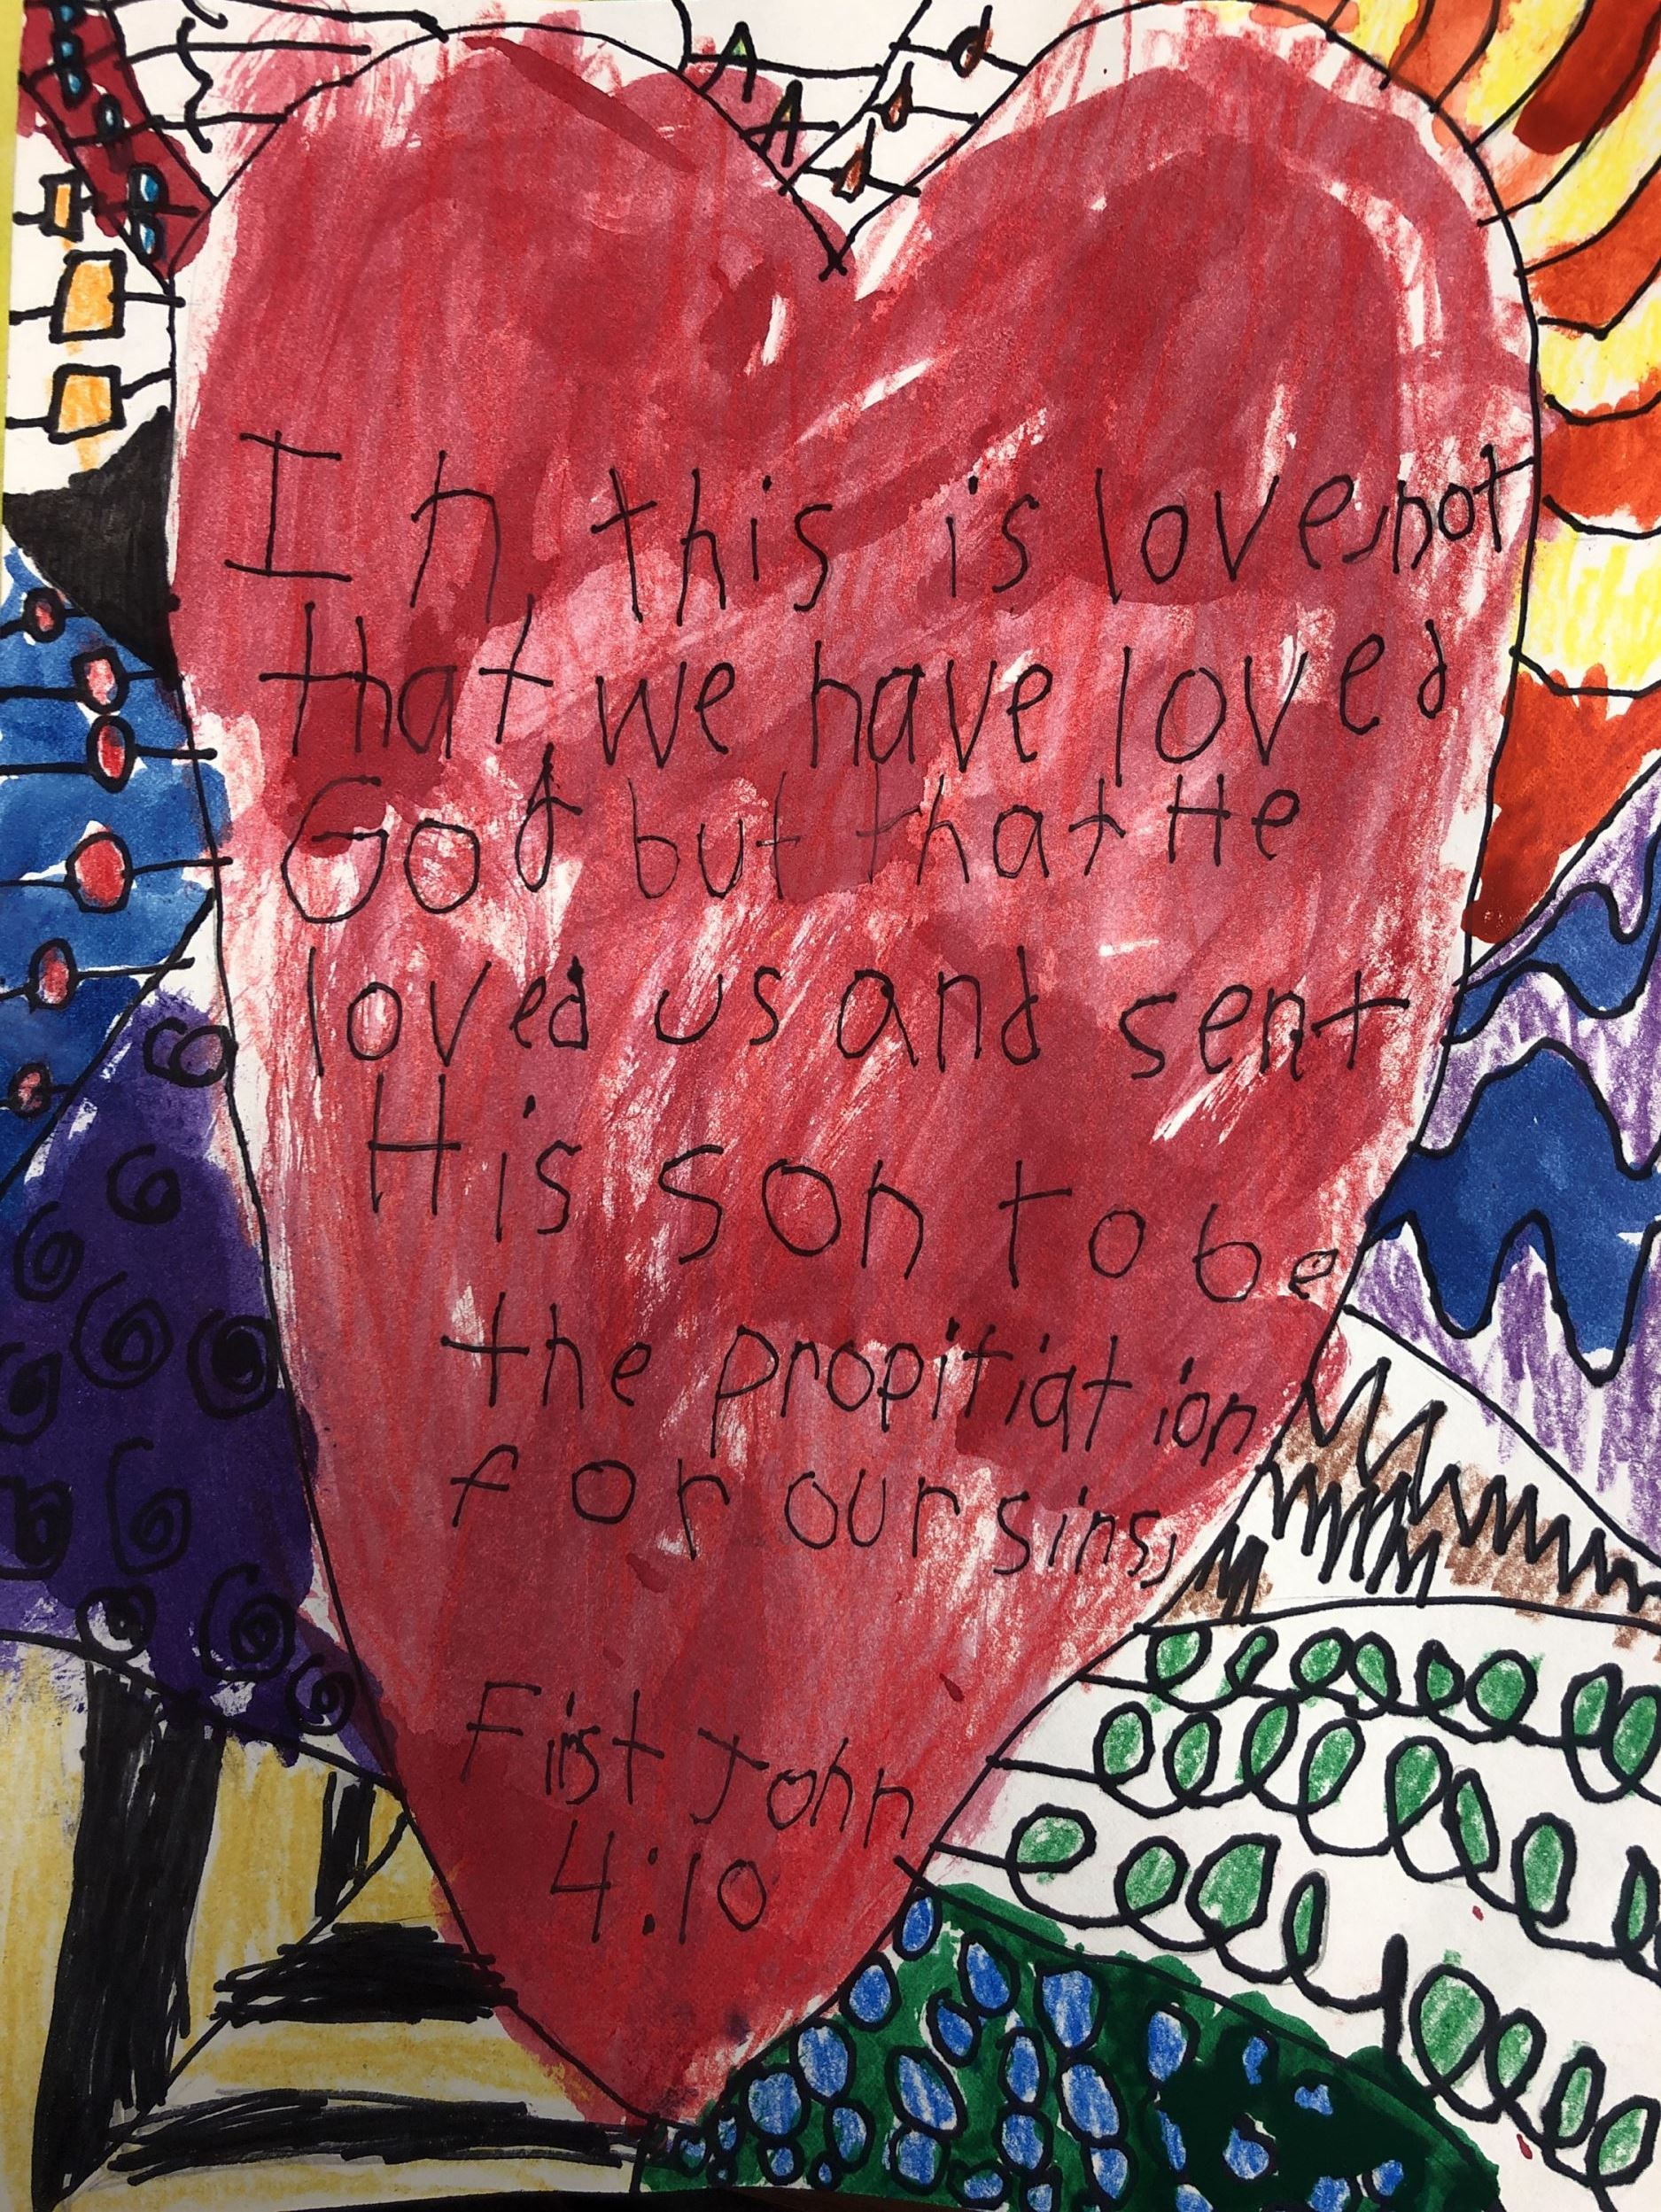 In this is love, not
that we have loved
God but that He
loved us and sent
His son to be
the propitiation
for our sins,
First John
4:10